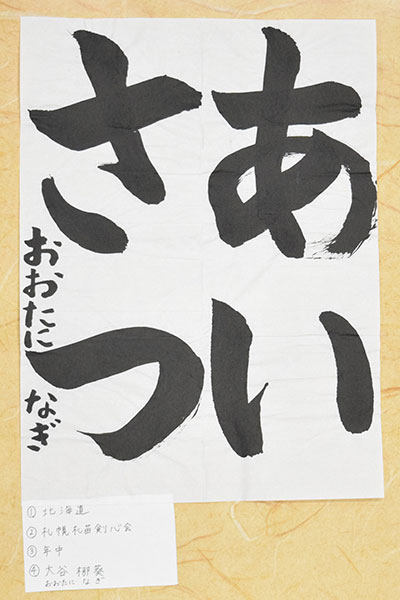 あい
さつ
おおたに なぎ
① 北海道
② 札幌札苗剣心会
③ 年中
④ 大谷 梛葵
おおたに なぎ